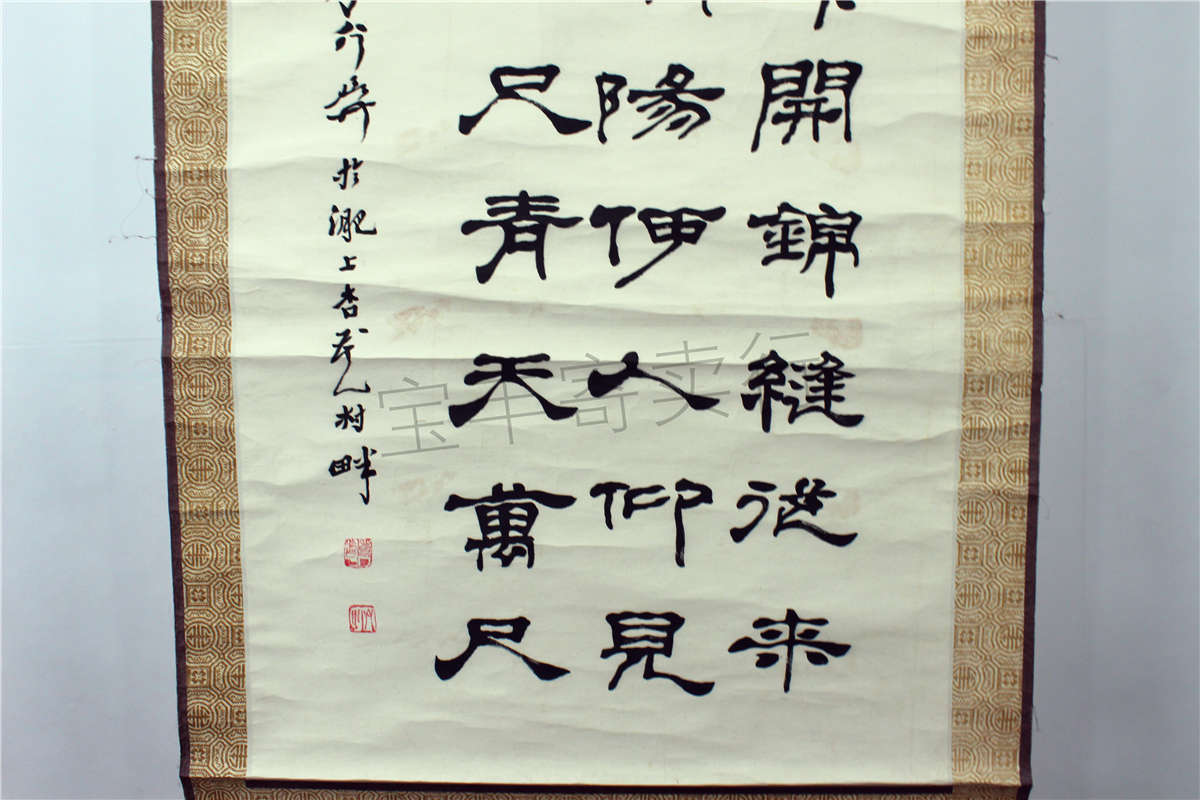 開錦縫從来
陽便人仰見
尺青天萬尺
行
於淝上杏花村畔
宝丰寄卖行